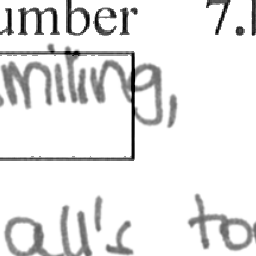 umber 7.
miting,
all's to